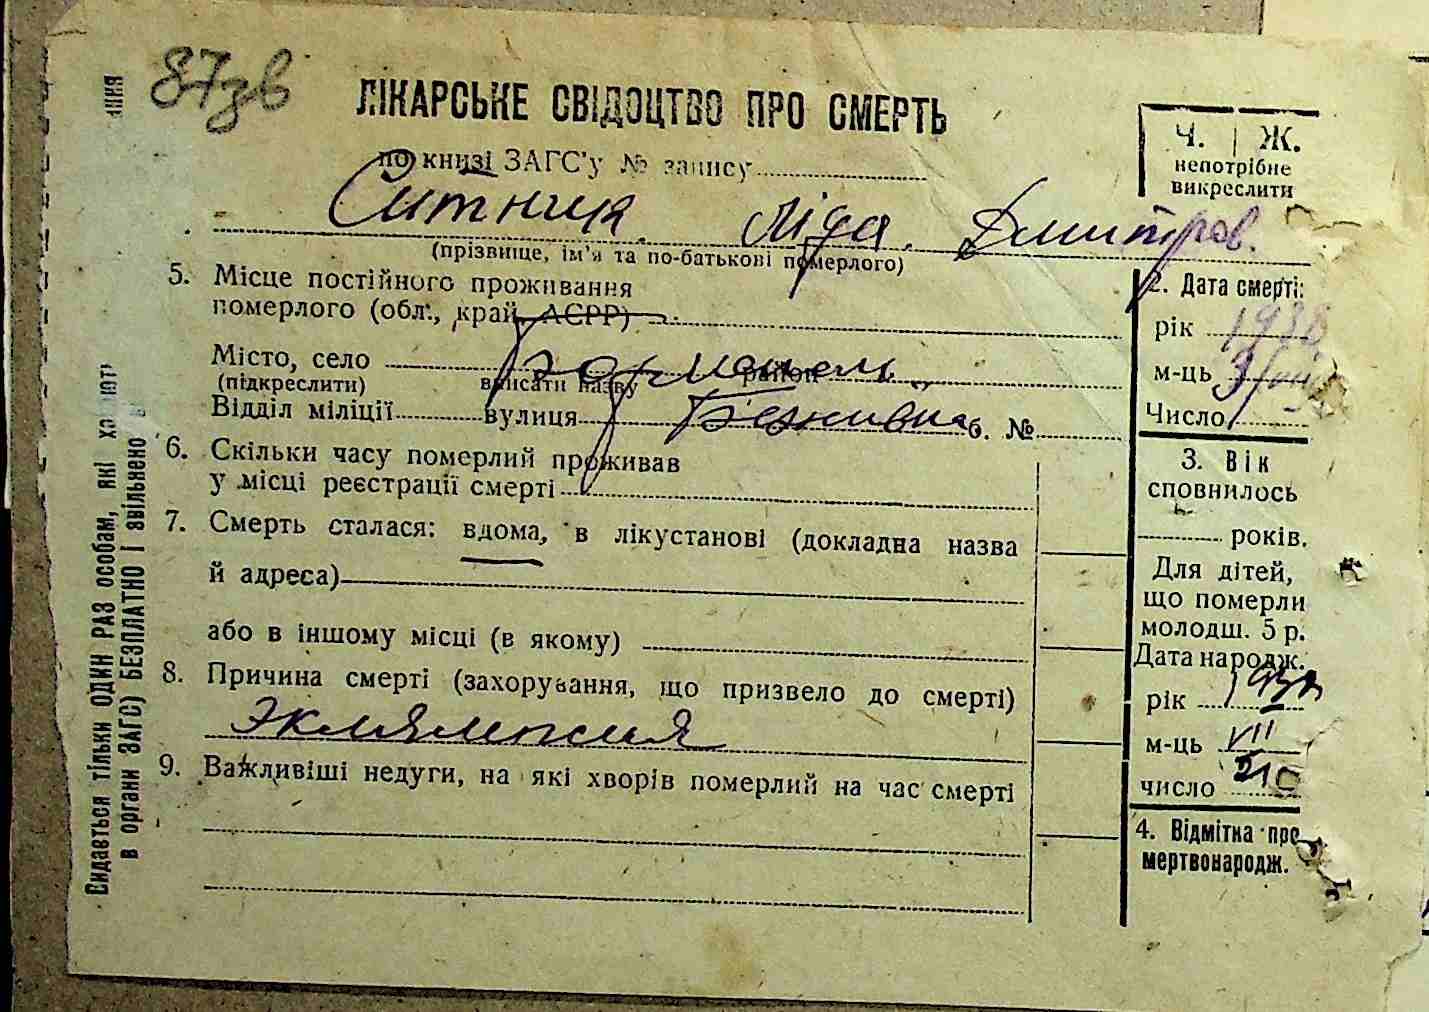 87зв
ЛІКАРСЬКЕ СВІДОЦТВО ПРО СМЕРТЬ
по книзі ЗАГС'у № запису
Ситник Ліда Дмитров.
(прізвище, ім'я та по-батькові померлого)
Ч. | Ж.
непотрібне
викреслити
5. Місце постійного проживання
померлого (обл., край, АСРР)
Місто, село
(підкреслити) вписати назву район
Відділ міліції вулиця б. №
6. Скільки часу померлий проживав
у місці реєстрації смерті
7. Смерть сталася: вдома, в лікустанові (докладна назва
й адреса)
або в іншому місці (в якому)
8. Причина смерті (захорування, що призвело до смерті)
Эклямпсия
9. Важливіші недуги, на які хворів померлий на час смерті
2. Дата смерті:
рік 1938
м-ць
Число
3. Вік
сповнилось
років.
Для дітей,
що померли
молодш. 5 р.
Дата народж.
рік 1938
м-ць VII
число 21
4. Відмітка про
мертвонародж.
Видається тільки ОДИН РАЗ особам, які
в органи ЗАГС) БЕЗПЛАТНО і звільнено